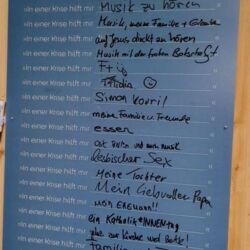 »In einer Krise hilft mir MUSIK zu hören «
»In einer Krise hilft mir Musik, meine Familie + Glaube
»In einer Krise hilft mir auf Jesus direkt zu hören
»In einer Krise hilft mir Musik mit der frohen Botschaft
»In einer Krise hilft mir
»In einer Krise hilft mir Fridia ☺
»In einer Krise hilft mir Simon
»In einer Krise hilft mir meine Familie u. Freunde
»In einer Krise hilft mir essen
»In einer Krise hilft mir und Musik
»In einer Krise hilft mir lesbischer Sex
»In einer Krise hilft mir Meine Tochter
»In einer Krise hilft mir Mein liebevoller Papa
»In einer Krise hilft mir MEIN EHEMANN!!
»In einer Krise hilft mir ein Katholik*INNENtag
»In einer Krise hilft mir Kirche und Bett!
»In einer Krise hilft mir Familie